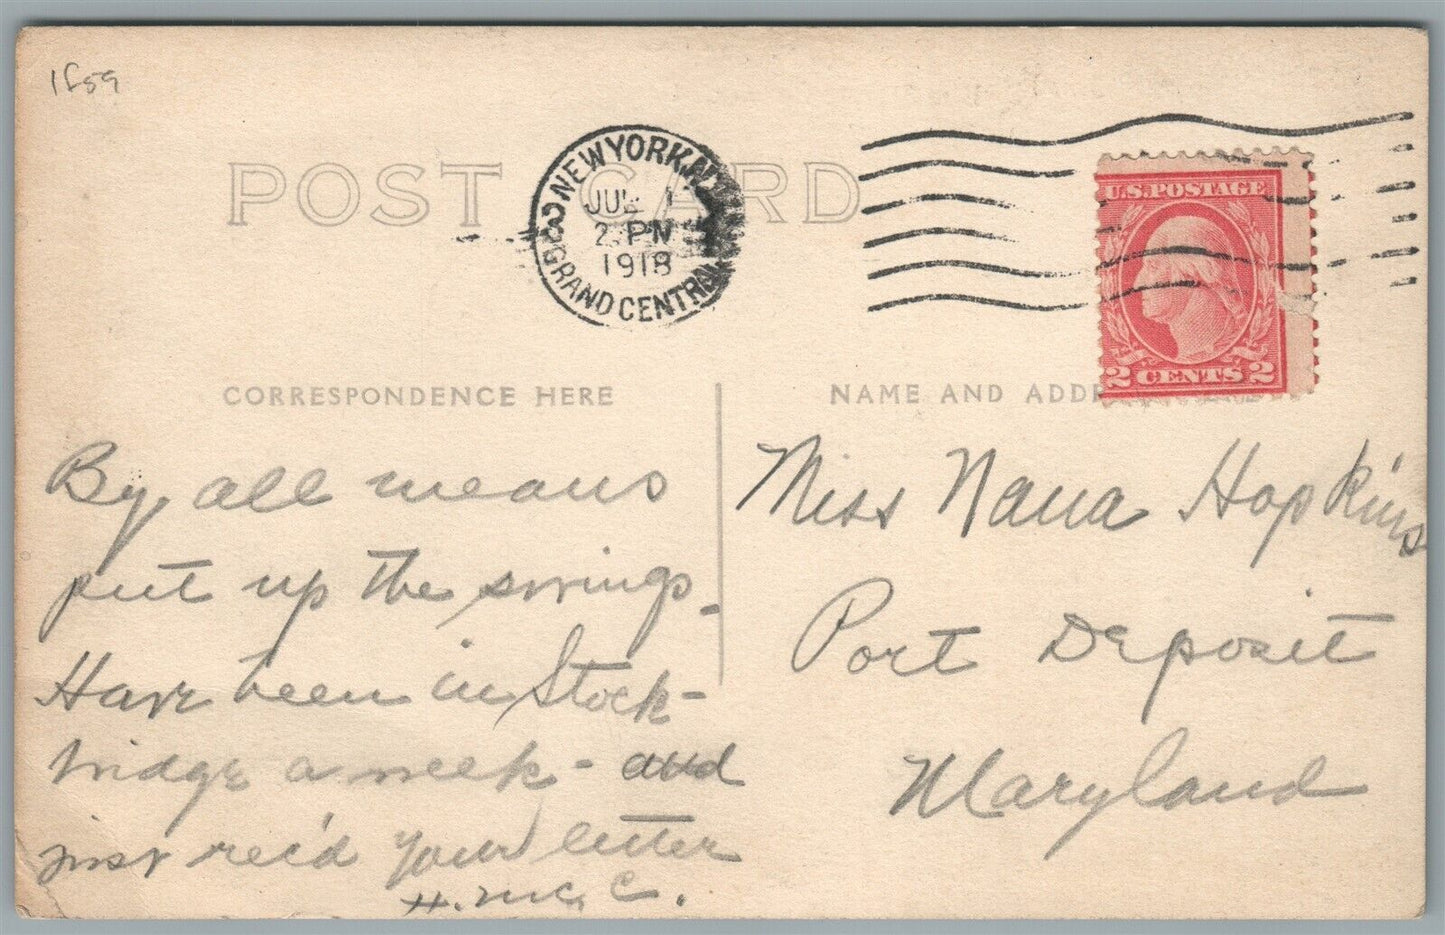 1f59
POST CARD
NEW YORK, N.Y.
JUL 1
2 PM
1918
GRAND CENTRAL
U.S. POSTAGE
2 CENTS 2
CORRESPONDENCE HERE
NAME AND ADD
By all means
put up the swings.
Have been in Stock-
bridge a week - and
just rec'd your letter
H. McC. C.
Miss Nana Hopkins
Port Deposit
Maryland